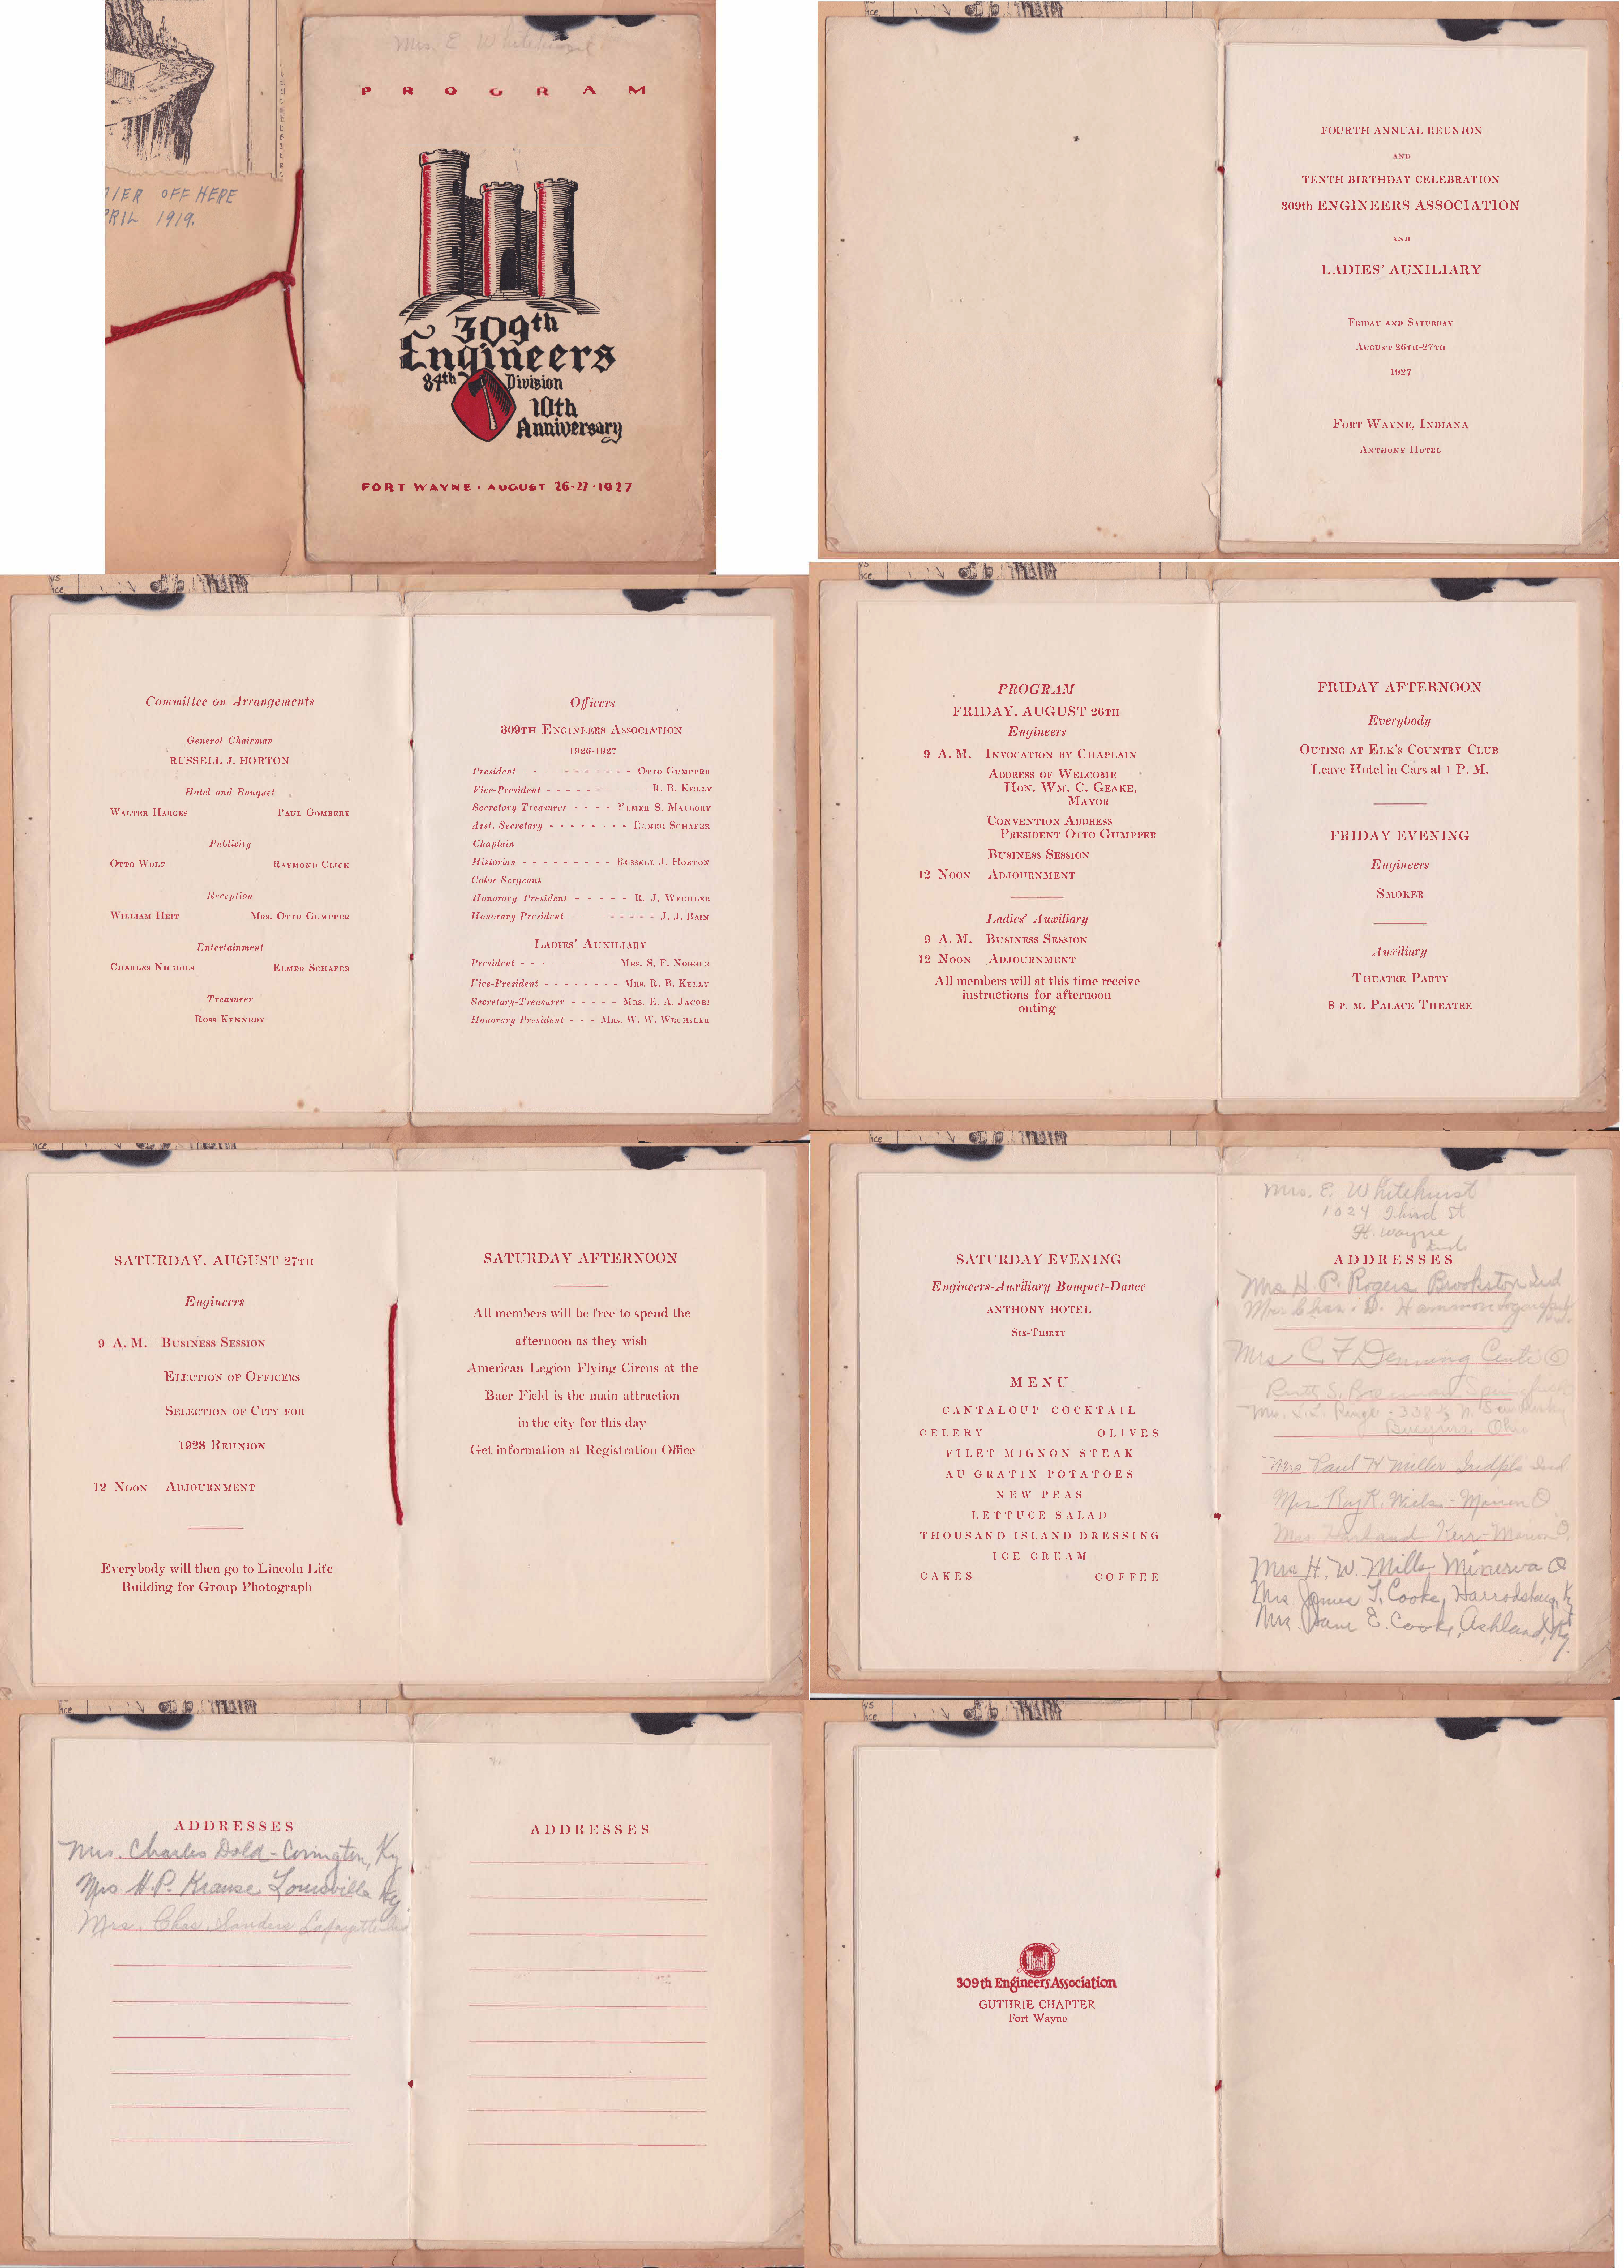 Mrs. E Whitehurst
PROGRAM
309th
Engineers
84th Division
10th
Anniversary
FORT WAYNE · AUGUST 26-27 · 1927
OFF HERE
1919.
FOURTH ANNUAL REUNION
AND
TENTH BIRTHDAY CELEBRATION
309th ENGINEERS ASSOCIATION
AND
LADIES' AUXILIARY
FRIDAY AND SATURDAY
AUGUST 26TH-27TH
1927
FORT WAYNE, INDIANA
ANTHONY HOTEL
Committee on Arrangements
General Chairman
RUSSELL J. HORTON
Hotel and Banquet
WALTER HARGES PAUL GOMBERT
Publicity
OTTO WOLF RAYMOND CLICK
Reception
WILLIAM HEIT MRS. OTTO GUMPPER
Entertainment
CHARLES NICHOLS ELMER SCHAFER
Treasurer
ROSS KENNEDY
Officers
309TH ENGINEERS ASSOCIATION
1926-1927
President - - - - - - - - - - - OTTO GUMPPER
Vice-President - - - - - - - - - - - R. B. KELLY
Secretary-Treasurer - - - - ELMER S. MALLORY
Asst. Secretary - - - - - - - - ELMER SCHAFER
Chaplain
Historian - - - - - - - - - RUSSELL J. HORTON
Color Sergeant
Honorary President - - - - - R. J. WECHLER
Honorary President - - - - - - - - - J. J. BAIN
LADIES' AUXILIARY
President - - - - - - - - - - MRS. S. F. NOGGLE
Vice-President - - - - - - - - MRS. R. B. KELLY
Secretary-Treasurer - - - - - MRS. E. A. JACOBI
Honorary President - - - MRS. W. W. WECHSLER
PROGRAM
FRIDAY, AUGUST 26TH
Engineers
9 A. M. INVOCATION BY CHAPLAIN
ADDRESS OF WELCOME
HON. WM. C. GEAKE,
MAYOR
CONVENTION ADDRESS
PRESIDENT OTTO GUMPPER
BUSINESS SESSION
12 NOON ADJOURNMENT
Ladies' Auxiliary
9 A. M. BUSINESS SESSION
12 NOON ADJOURNMENT
All members will at this time receive
instructions for afternoon
outing
FRIDAY AFTERNOON
Everybody
OUTING AT ELK'S COUNTRY CLUB
Leave Hotel in Cars at 1 P. M.
FRIDAY EVENING
Engineers
SMOKER
Auxiliary
THEATRE PARTY
8 P. M. PALACE THEATRE
SATURDAY, AUGUST 27TH
Engineers
9 A. M. BUSINESS SESSION
ELECTION OF OFFICERS
SELECTION OF CITY FOR
1928 REUNION
12 NOON ADJOURNMENT
Everybody will then go to Lincoln Life
Building for Group Photograph
SATURDAY AFTERNOON
All members will be free to spend the
afternoon as they wish
American Legion Flying Circus at the
Baer Field is the main attraction
in the city for this day
Get information at Registration Office
SATURDAY EVENING
Engineers-Auxiliary Banquet-Dance
ANTHONY HOTEL
SIX-THIRTY
MENU
CANTALOUP COCKTAIL
CELERY OLIVES
FILET MIGNON STEAK
AU GRATIN POTATOES
NEW PEAS
LETTUCE SALAD
THOUSAND ISLAND DRESSING
ICE CREAM
CAKES COFFEE
Mrs. E. Whitehurst
1024 Third St
Ft. Wayne
Ind.
ADDRESSES
Mrs H. P. Rogers Brookston Ind
Mrs. Chas. D. Hammon
Mrs C. F. Deming
Ruth S.
Mrs. 338 ½ N. Sandusky
Bucyrus, Ohio
Mrs Paul H Miller Indpls Ind.
Mrs Ray R. - Marion O
Mrs Harland Kerr - Marion O.
Mrs H. W. Mills, Minerva O
Mrs James T. Cooke, Harrodsburg, Ky
Mrs. Sam E. Cooke, Ashland, Ky.
ADDRESSES
Mrs. Charles Dold - Covington, Ky
Mrs. H. P. Krause Louisville Ky.
Mrs. Chas. Sanders Lafayette Ind
ADDRESSES
309th Engineers Association
GUTHRIE CHAPTER
Fort Wayne